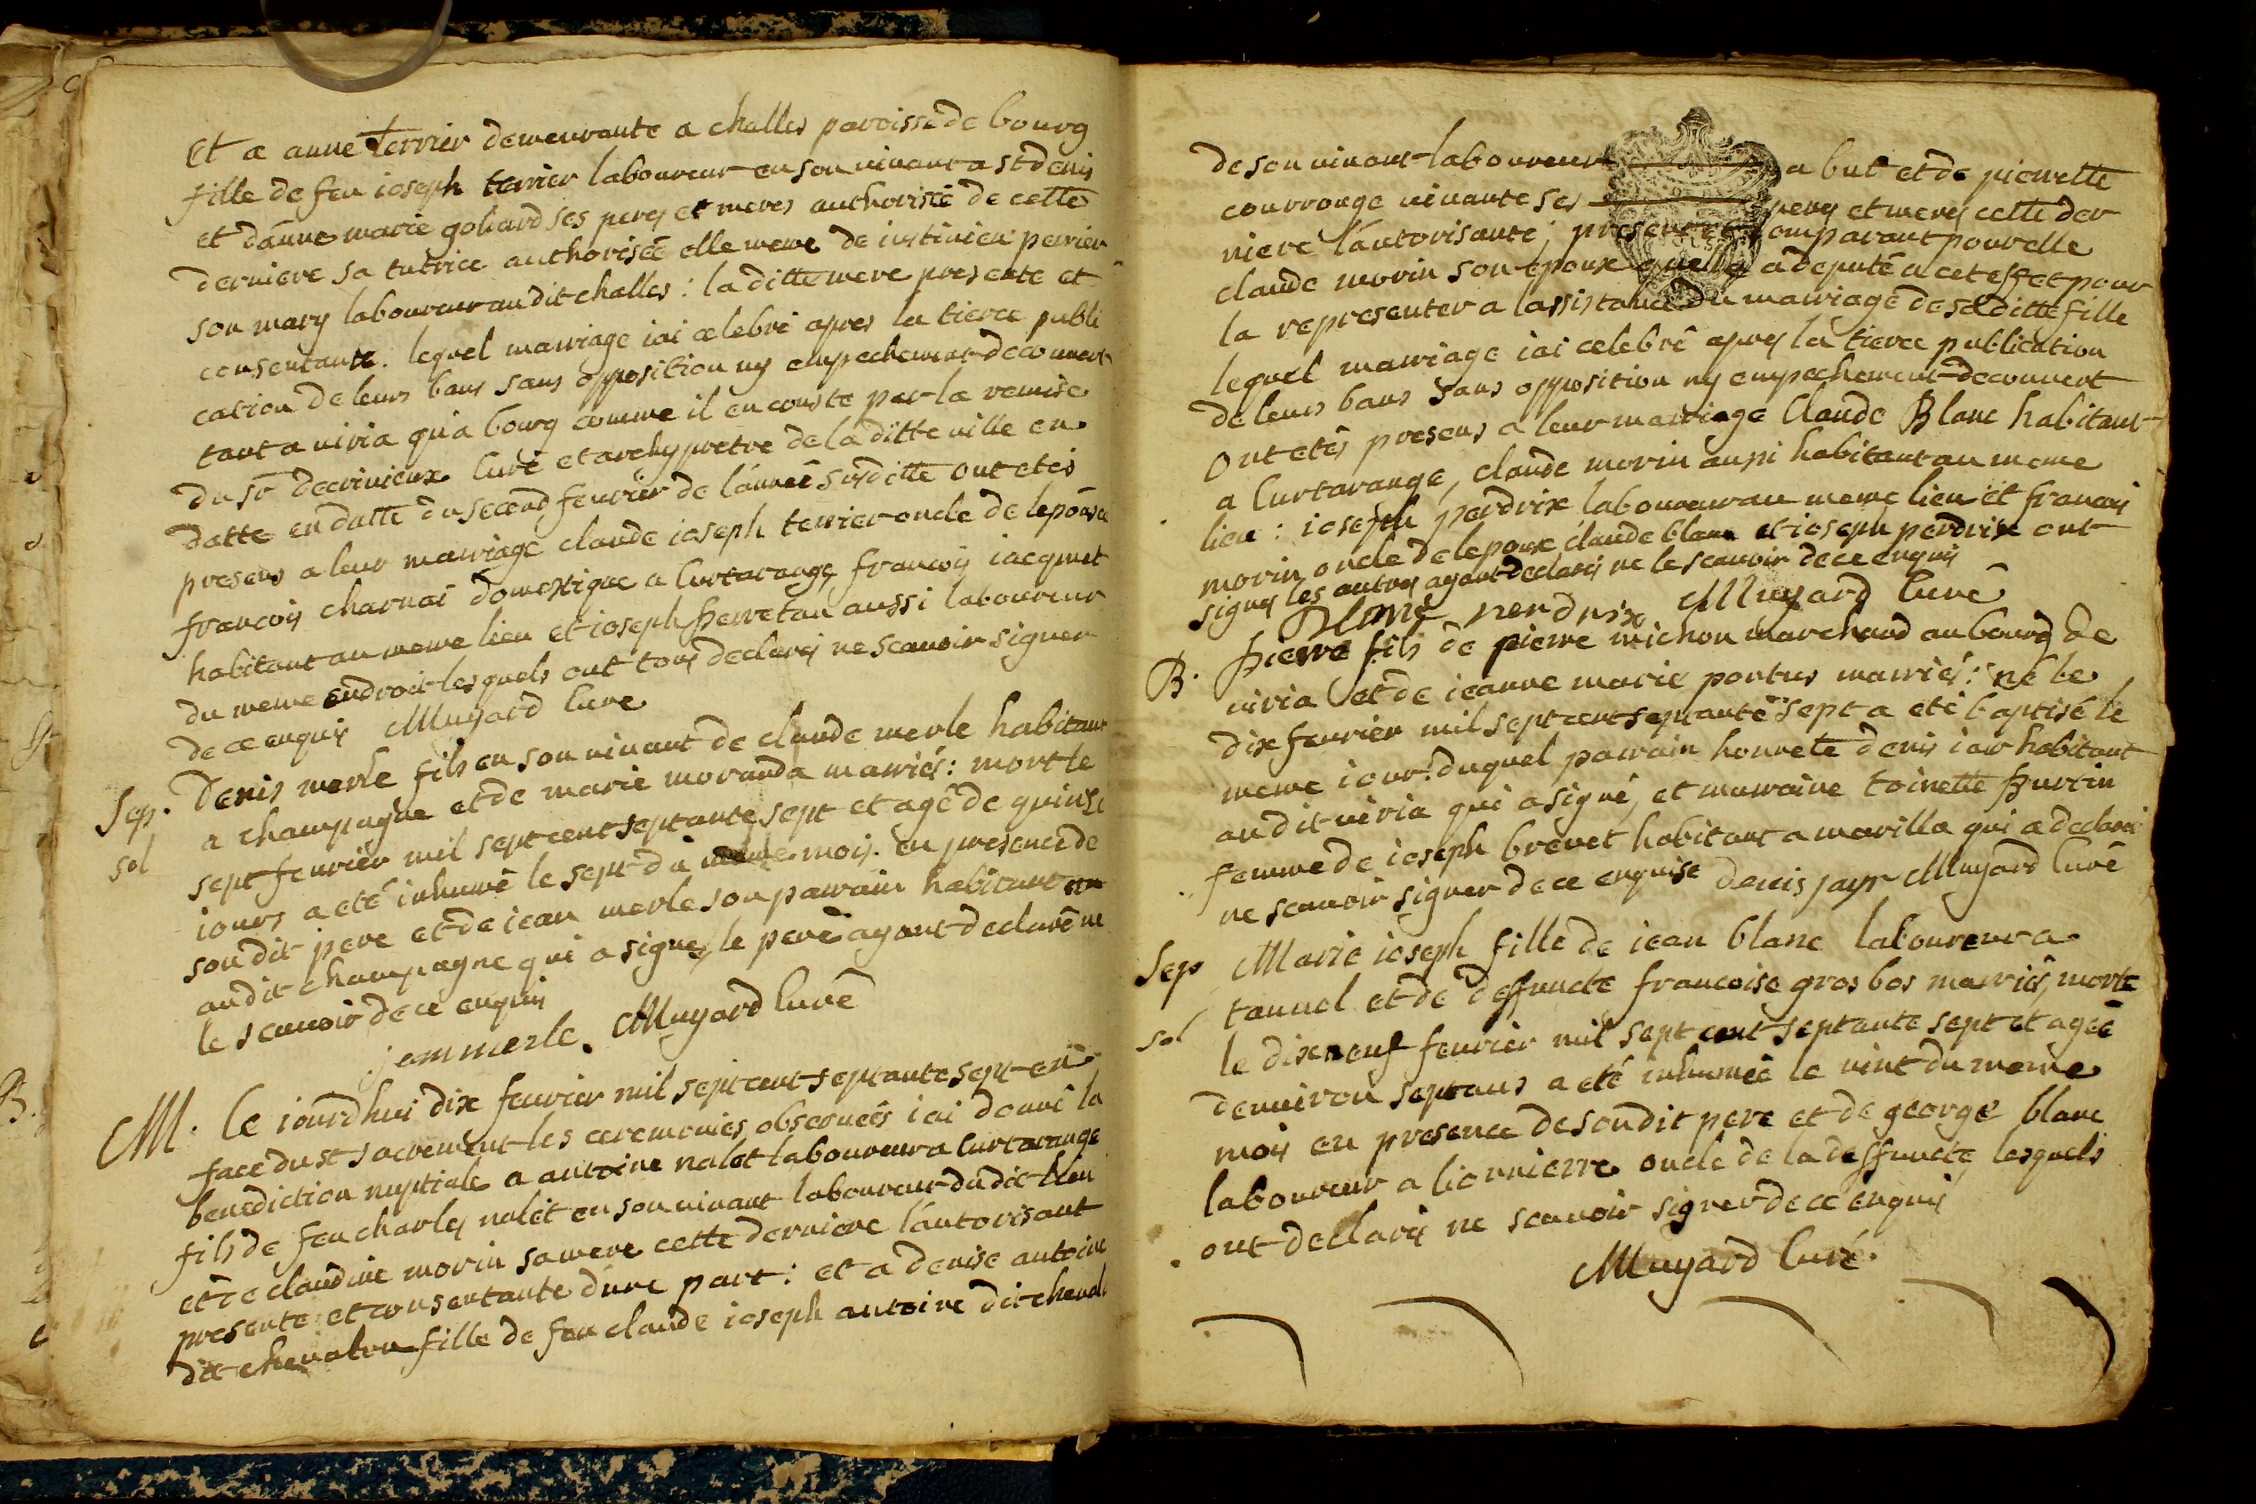 Et a anne terrier demeurante a challes paroisse de bourg
fille de feu ioseph terrier laboureur en son vivant a st denis
et danne marie goliard ses perez et meres authorisée de cette
derniere sa tutrice authorisée elle meme de iustinien perrier
son mary laboureur audit challes : la ditte mere presente et
consentante. lequel mariage iai celebré apres la tierce publi
cation de leurs bans sans opposition ny empechement decouvert
tant a viria qu'a bourg comme il en conste par la remise
du sr decrivieux Curé et archyprêtre de la ditte ville en
datte en datte du second fevrier de l'année susditte ont etés
presens a leur mariage claude ioseph terrier oncle de lepouse
francois charnai domestique a Curtarange, francois iacquet
habitant au meme lieu et ioseph perretan aussi laboureur
du meme endroit lesquels ont tous declarés ne scavoir signer
de ce enquis Mugard Cure
Sep. Denis merle fils en son vivant de claude merle habitant
a champagne et de marie moranda mariés : mort le
sol sept fevrier mil sept cent septante sept et agé de quinze
iours a eté inhumé le sept du mois en presence de
son dit pere et de iean merle son parrain habitant
audit champagne qui a signé, le pere ayant declaré ne
le scavoir de ce enquis
jean merle. Mugard Curé
M. Le iourdhui dix fevrier mil sept cent septante sept en
face du st sacrement les ceremonies observées iai donné la
benediction nuptiale a antoine nalet laboureur a Curtarange
fils de feu charles nalet en son vivant laboureur dudit lieu
et de claudine morin sa mere cette derniere l'autorisant
presente et consentante d'une part : et a denise antoine
dit chevalon fille de feu claude ioseph antoine dit cheval
de son vivant laboureur a but et de pierrette
courronge vivante ses perez et merez cette der
niere l'autorisante ; comparant pour elle
claude morin son epoux a deputé a cet effet pour
la representer a lassistance du mariage de sa ditte fille
lequel mariage iai celebré apres la tierce publication
de leurs bans sans opposition ny empechement decouvert
Ont etés presens a leur mariage Claude Blanc habitant
a Curtarange, claude morin aussi habitant au meme
lieu : ioseph perdrix laboureur au meme lieu et francois
morin oncle de lepoux claude blanc et ioseph perdrix ont
signés les autres ayant declarés ne le scavoir de ce enquis
Blanc perdrix Mugard Curé
B. Pierre fils de pierre michon marchand au bourg de
viria et de ieanne marie portus mariés : né le
dix fevrier mil sept cent septante sept a eté baptisé le
meme iour. duquel parrain honnete denis iair habitant
audit viria qui a signé, et marraine toinette Purtin
femme de ioseph brevet habitant a marilla qui a declaré
ne scavoir signer de ce enquise denis jayr Mugard Curé
Sep Marie ioseph fille de iean blanc laboureur a
tannel et de deffuncte francoise gros bos mariés, morte
sol le dix neuf fevrier mil sept cent septante sept et agée
denviron sept ans a eté inhumée le vint du meme
mois en presence de son dit pere et de george blanc
laboureur a lionniere oncle de la deffuncte, lesquels
ont declarés ne scavoir signer de ce enquis
Mugard Curé.